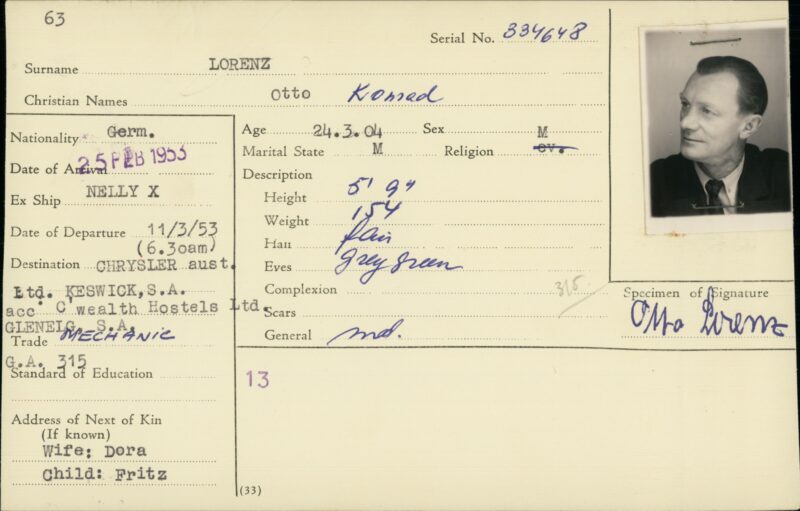 63
Serial No. 334648
Surname LORENZ
Christian Names Otto Konrad
Nationality Germ.
Date of Arrival 25 FEB 1953
Ex Ship NELLY X
Date of Departure 11/3/53
(6.30am)
Destination CHRYSLER aust.
Ltd. KESWICK, S.A.
acc C'wealth Hostels Ltd.
GLENELG, S.A.
Trade MECHANIC
G.A. 315
Standard of Education
Address of Next of Kin
(If known)
Wife: Dora
Child: Fritz
Age 24.3.04 Sex M
Marital State M Religion ev.
Description
Height 5' 9"
Weight 154
Hair fair
Eyes grey green
Complexion
315
Scars
General md.
13
(33)
Specimen of Signature
Otto Lorenz